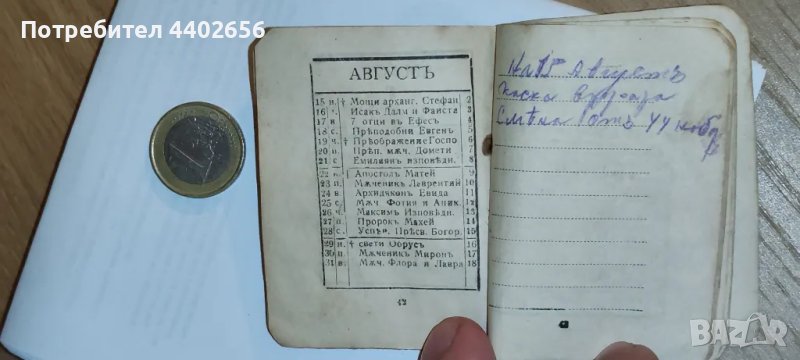 Потребител 4402656
АВГУСТЪ
15 н. † Мощи арханг. Стефан 2
16 Исакъ Далм и Фаиста 3
17 в 7 отци въ Ефесъ
18 с. Прѣподобни Евгенъ 5
19 ч. † Прѣображение Госпо 6
20 п. Прѣп. мѫч. Домети 7
21 с Емилиянъ изповѣдн. 8
22 н. Апостолъ Матей 9
23 п. Мѫченикъ Лаврентий 10
24 в Архидяконъ Евида 11
25 с. Мѫч Фотия и Аник. 12
26 ч. Максимъ Изповѣдн. 13
27 п. Пророкъ Михей 14
28 с. Успѣн. Прѣсв. Богор. 15
29 н. † свети Обрусъ 16
30 п Мѫченикъ Миронъ 17
31 в. Мѫч. Флора и Лавра 18
42
На 15 Августъ
отъ
BAZAR
bg